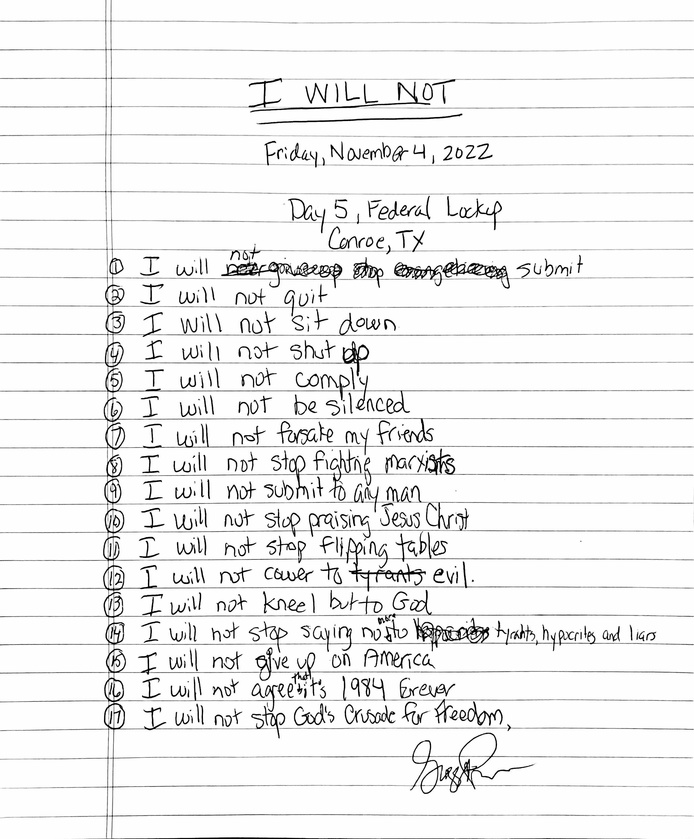 I WILL NOT
Friday, November 4, 2022
Day 5, Federal Lockup
Conroe, TX
① I will not submit
② I will not quit
③ I will not sit down
④ I will not shut up
⑤ I will not comply
⑥ I will not be silenced
⑦ I will not forsake my friends
⑧ I will not stop fighting marxists
⑨ I will not submit to any man
⑩ I will not stop praising Jesus Christ
⑪ I will not stop flipping tables
⑫ I will not cower to tyrants evil.
⑬ I will not kneel but to God
⑭ I will not stop saying no more to tyrants, hypocrites and liars
⑮ I will not give up on America
⑯ I will not agree that it's 1984 forever
⑰ I will not stop God's Crusade for freedom,